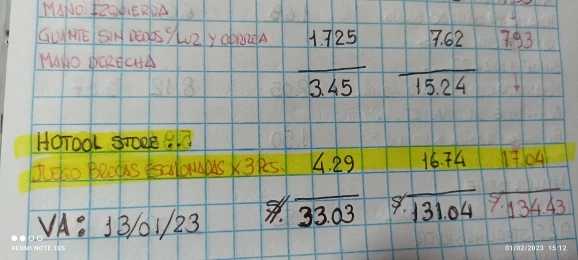 MANO IZQUIERDA
GUANTE SIN DEDOS c/LUZ Y CORREA 1.725 7.62 7.93
MANO DERECHA
3.45 15.24
HOTOOL STORE
JUEGO BROCAS ESCALONADAS x 3 Pcs. 4.29 16.74 17.04
VA: 13/01/23 $. 33.03 $. 131.04 $. 134.43
REDMI NOTE 10S 01/02/2023 15:12